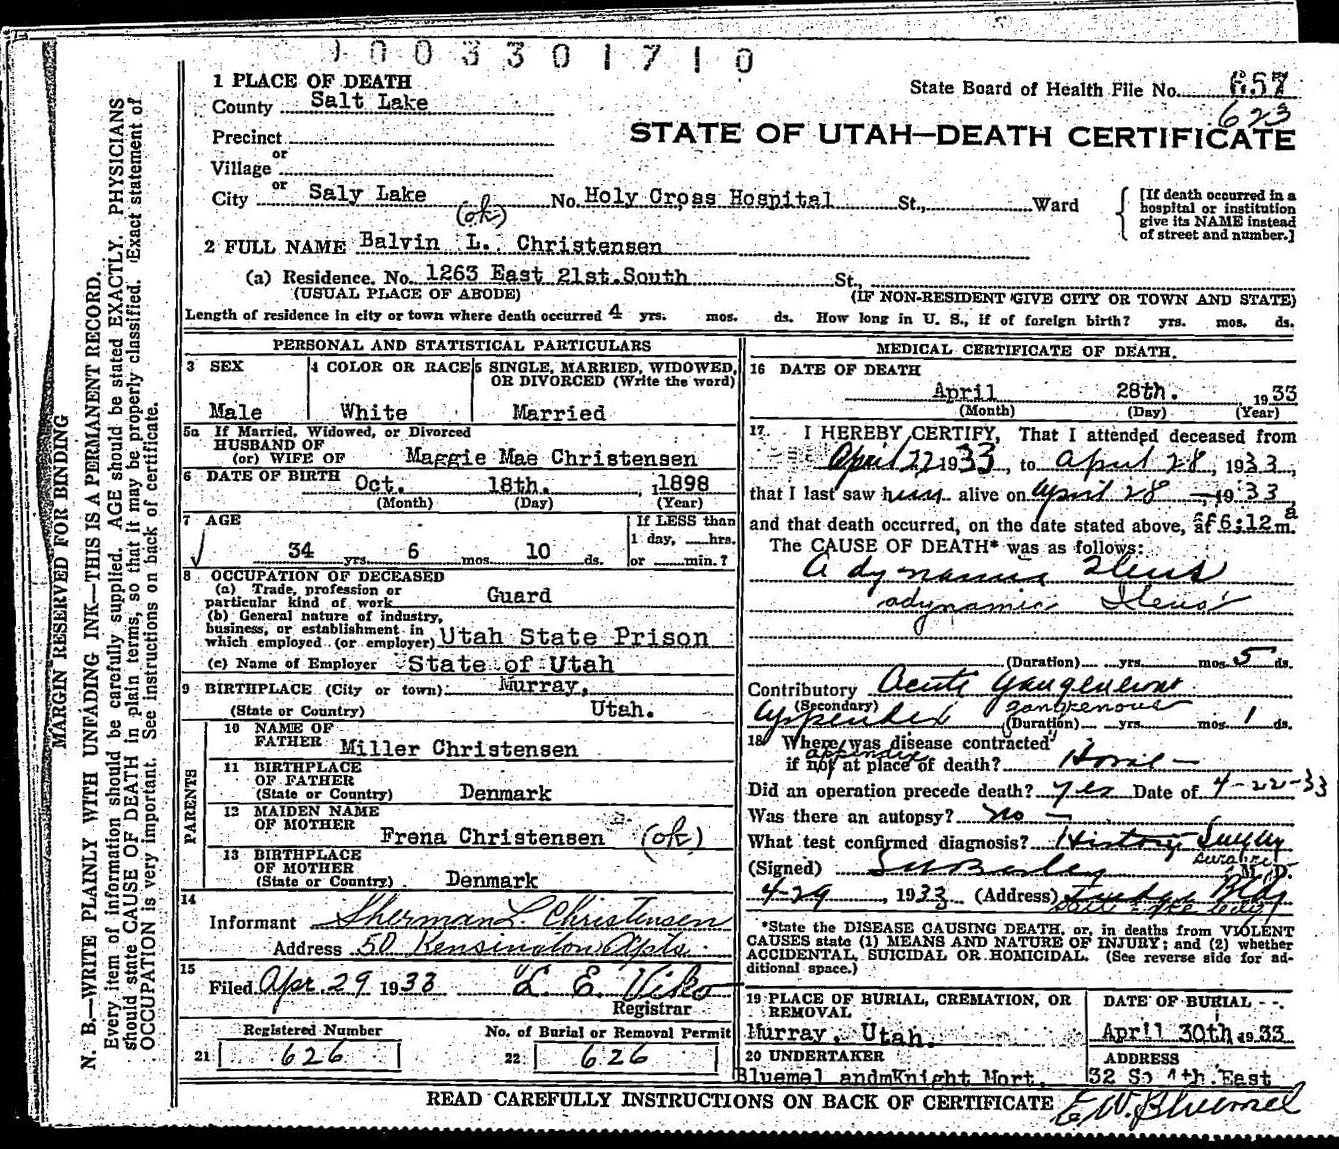 1003301710
1 PLACE OF DEATH
County Salt Lake
State Board of Health File No. 657
623
Precinct
or
Village
STATE OF UTAH—DEATH CERTIFICATE
or
City Saly Lake No. Holy Cross Hospital St., Ward
[If death occurred in a hospital or institution give its NAME instead of street and number.]
(ok)
2 FULL NAME Balvin L. Christensen
(a) Residence. No. 1263 East 21st. South St.,
(USUAL PLACE OF ABODE) (IF NON-RESIDENT GIVE CITY OR TOWN AND STATE)
Length of residence in city or town where death occurred 4 yrs. mos. ds. How long in U. S., if of foreign birth? yrs. mos. ds.
MARGIN RESERVED FOR BINDING
N. B.—WRITE PLAINLY WITH UNFADING INK—THIS IS A PERMANENT RECORD.
Every item of information should be carefully supplied. AGE should be stated EXACTLY. PHYSICIANS
should state CAUSE OF DEATH in plain terms, so that it may be properly classified. Exact statement of
OCCUPATION is very important. See instructions on back of certificate.
PERSONAL AND STATISTICAL PARTICULARS
3 SEX
Male
4 COLOR OR RACE
White
5 SINGLE, MARRIED, WIDOWED,
OR DIVORCED (Write the word)
Married
5a If Married, Widowed, or Divorced
HUSBAND OF
(or) WIFE OF Maggie Mae Christensen
6 DATE OF BIRTH Oct. 18th. , 1898
(Month) (Day) (Year)
7 AGE
34 yrs. 6 mos. 10 ds.
If LESS than
1 day, hrs.
or min.?
8 OCCUPATION OF DECEASED
(a) Trade, profession or
particular kind of work Guard
(b) General nature of industry,
business, or establishment in
which employed (or employer) Utah State Prison
(c) Name of Employer State of Utah
9 BIRTHPLACE (City or town) Murray,
(State or Country) Utah.
PARENTS
10 NAME OF
FATHER Miller Christensen
11 BIRTHPLACE
OF FATHER
(State or Country) Denmark
12 MAIDEN NAME
OF MOTHER Frena Christensen (ok)
13 BIRTHPLACE
OF MOTHER
(State or Country) Denmark
14
Informant Sherman L. Christensen
Address 50 Kensington Apts.
15
Filed Apr. 29 1933 L. E. Viko
Registrar
Registered Number
21 626
No. of Burial or Removal Permit
22 626
MEDICAL CERTIFICATE OF DEATH.
16 DATE OF DEATH
April 28th. 1933
(Month) (Day) (Year)
17. I HEREBY CERTIFY, That I attended deceased from
April 22 1933, to April 28, 1933,
that I last saw him alive on April 28, 1933,
and that death occurred, on the date stated above, at 6:12 a m.
The CAUSE OF DEATH* was as follows:
Adynamic Ileus
adynamic Ileus
(Duration) yrs. mos. 5 ds.
Contributory Acute gangrenous
(Secondary) gangrenous
Appendix (Duration) yrs. mos. 1 ds.
18 Where was disease contracted
if not at place of death? Home
Did an operation precede death? Yes Date of 4-22-33
Was there an autopsy? No
What test confirmed diagnosis? History
(Signed) M. D.
4-29, 1933 (Address) Bldg
Salt Lake City
*State the DISEASE CAUSING DEATH, or, in deaths from VIOLENT
CAUSES state (1) MEANS AND NATURE OF INJURY; and (2) whether
ACCIDENTAL, SUICIDAL OR HOMICIDAL. (See reverse side for ad-
ditional space.)
19 PLACE OF BURIAL, CREMATION, OR
REMOVAL
Murray, Utah.
DATE OF BURIAL
April 30th 1933
20 UNDERTAKER
Bluemel andmKnight Mort.
ADDRESS
32 So 4th. East
READ CAREFULLY INSTRUCTIONS ON BACK OF CERTIFICATE E. W. Bluemel